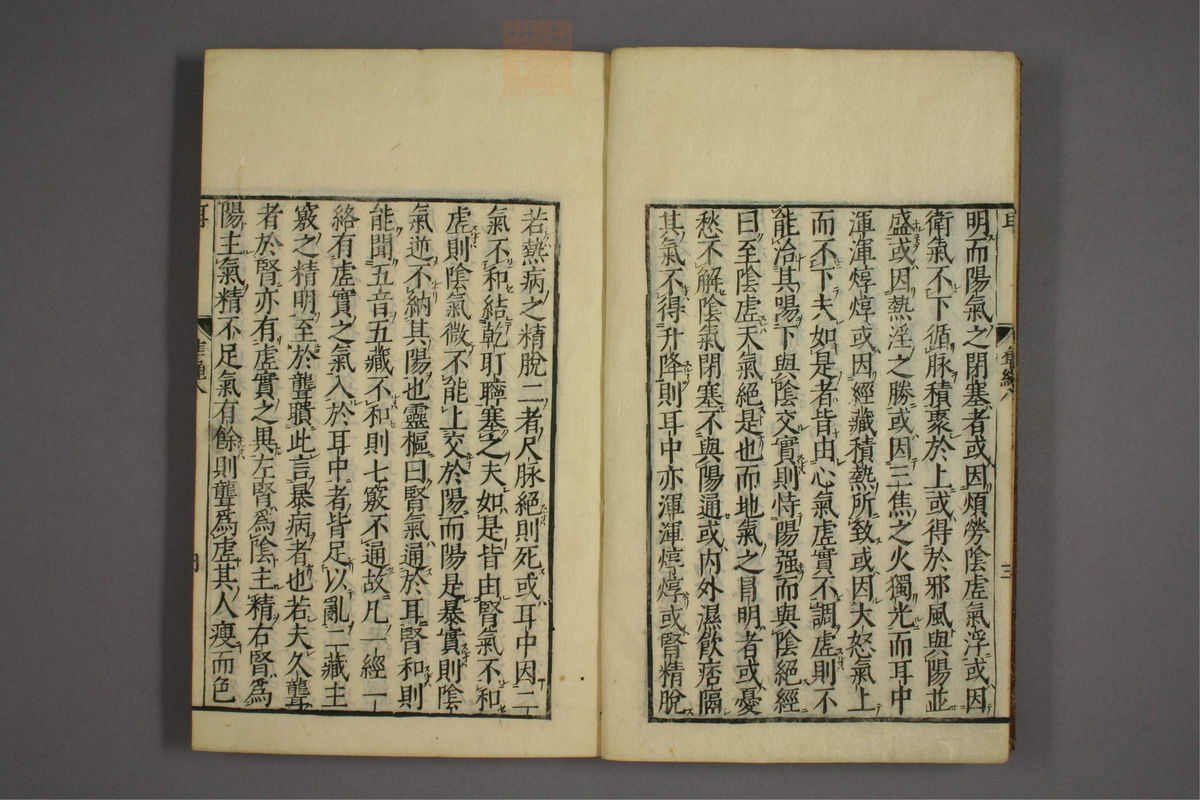 明而陽氣之閉塞者或因煩勞陰虛氣浮或因
衛氣不下循脉積聚於上或得於邪風與陽並
盛或因熱淫之勝或因三焦之火獨光而耳中
渾渾焞焞或因經藏積熱所致或因大怒氣上
而不下夫如是者皆由心氣虛實不調虛則不
能治其陽下與陰交實則恃陽强而與陰絕經
曰至陰虛天氣絕是也而地氣之冐明者或憂
愁不解陰氣閉塞不與陽通或内外濕飲痞隔
其氣不得升降則耳中亦渾渾焞焞或腎精脫
三
若熱病之精脫二者尺脉絕則死或耳中因
氣不和結乾耵聹塞之夫如是皆由腎氣不和
虛則陰氣微不能上交於陽而陽是暴實則陰
氣逆不納其陽也靈樞曰腎氣通於耳腎和則
能聞五音五藏不和則七竅不通故凡一經一
絡有虛實之氣入於耳中者皆足以亂二藏主
竅之精明至於聾聵此言暴病者也若夫久聾
者於腎亦有虛實之異左腎爲陰主精右腎爲
陽主氣精不足氣有餘則聾爲虛其人瘦而色
耳